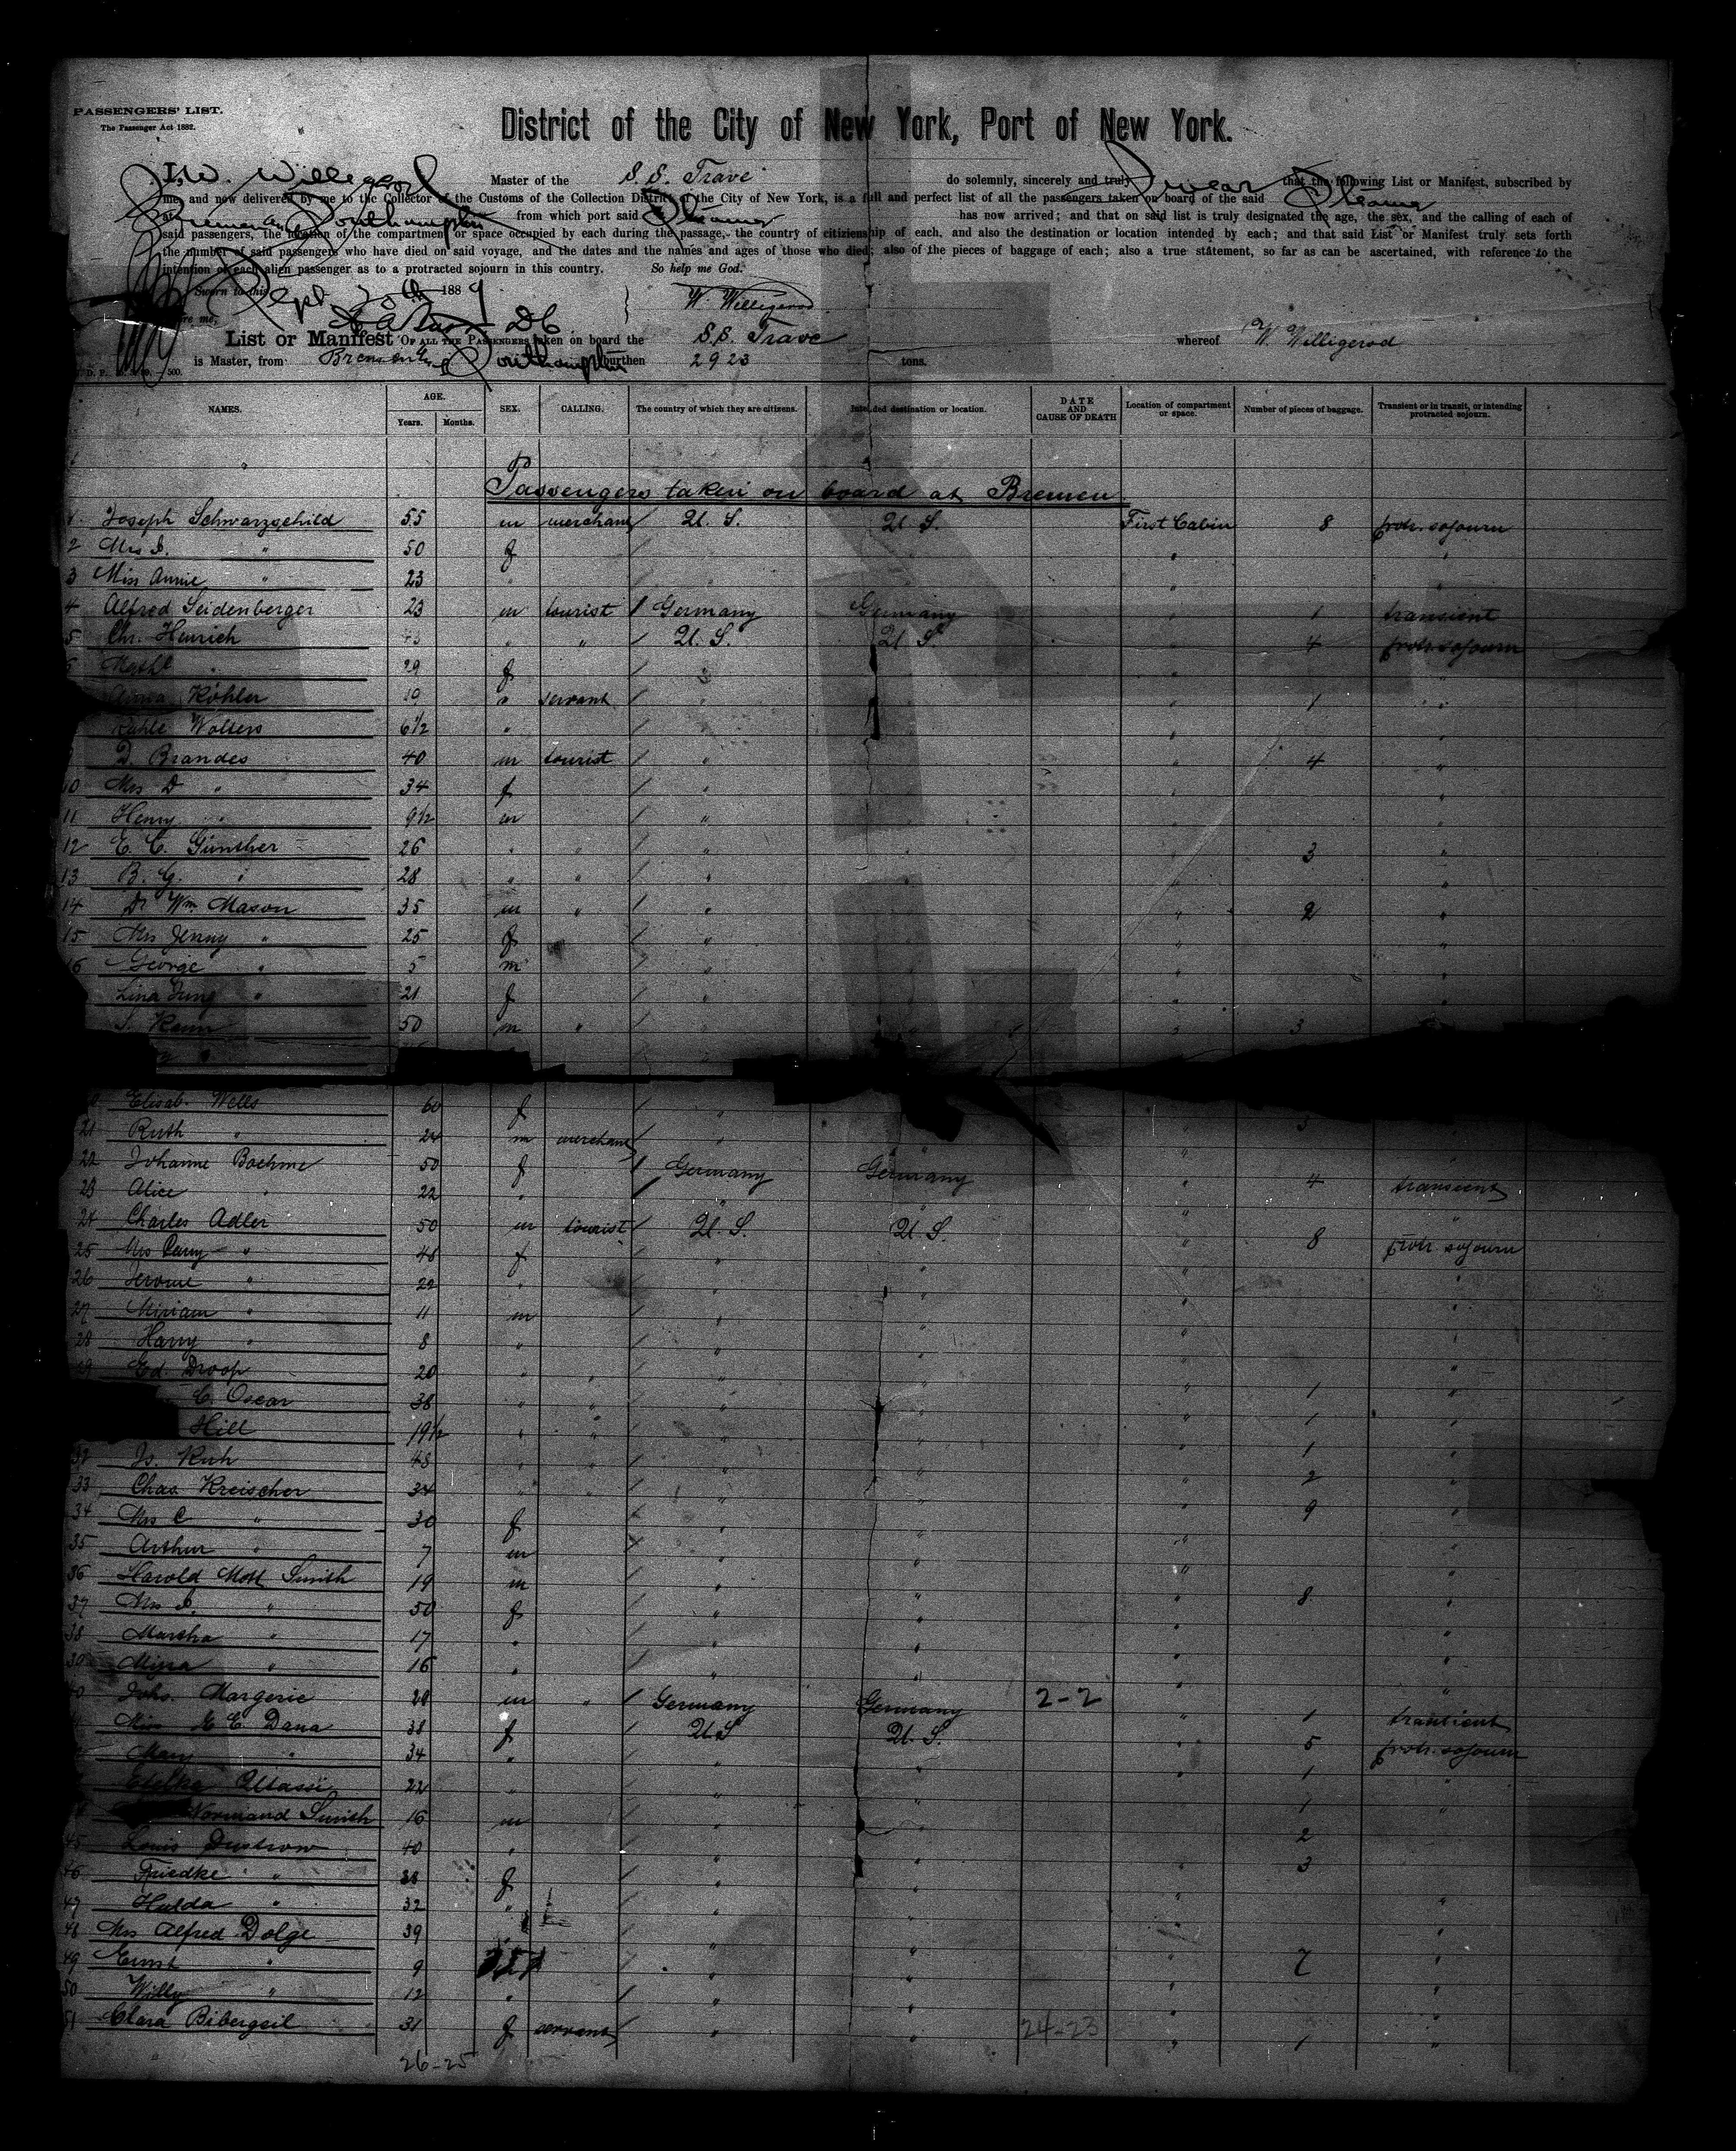 PASSENGERS' LIST.
The Passenger Act 1882.
District of the City of New York, Port of New York.
I, W. Willigerod Master of the S. S. Trave do solemnly, sincerely and truly swear that the following List or Manifest, subscribed by
me, and now delivered by me to the Collector of the Customs of the Collection District of the City of New York, is a full and perfect list of all the passengers taken on board of the said Steamer
at Bremen & Southampton from which port said Steamer has now arrived; and that on said list is truly designated the age, the sex, and the calling of each of
said passengers, the location of the compartment or space occupied by each during the passage, the country of citizenship of each, and also the destination or location intended by each; and that said List or Manifest truly sets forth
the number of said passengers who have died on said voyage, and the dates and the names and ages of those who died; also of the pieces of baggage of each; also a true statement, so far as can be ascertained, with reference to the
intention of each alien passenger as to a protracted sojourn in this country. So help me God.
Sworn to this Sept 20th 1889 W. Willigerod
me,
List or Manifest OF ALL THE PASSENGERS taken on board the S.S. Trave whereof W. Willigerod
is Master, from Bremen & Southampton burthen 2923 tons.
NAMES. AGE. Years. Months. SEX. CALLING. The country of which they are citizens. Intended destination or location. DATE AND CAUSE OF DEATH Location of compartment or space. Number of pieces of baggage. Transient or in transit, or intending protracted sojourn.
Passengers taken on board at Bremen
1 Joseph Schwarzschild 55 m merchant U. S. U. S. First Cabin 8 protr. sojourn
2 Mrs S. " 50 f
3 Miss Annie " 23
4 Alfred Seidenberger 23 m tourist Germany Germany 1 transient
5 Chr. Heinrich " " U. S. U. S. 4 protr. sojourn
6 29 f "
Anna Köhler 19 " servant 1 "
Wolters 6 1/2 "
D. Brandes 40 m tourist " 4 "
10 Mrs D " 34 f "
11 Henry " 9 1/2 m "
12 E. C. Günther 26 " " " 3 "
13 B. G. " 28 " " "
14 Dr Wm Mason 35 m " " 2 "
15 Mrs Jenny " 25 f "
16 George " 5 m "
Lina Jung " 21 f "
50 m " 3
Elisab. Wells 60 f " 3
21 Ruth " 24 m merchant "
22 Johanne Boehme 50 f Germany Germany 4 transient
23 Alice " 22 " "
24 Charles Adler 50 m tourist U. S. U. S. 8 protr. sojourn
25 Mrs " f "
26 Jerome " 22 " "
27 Miriam " 11 m "
28 Harry " 8 " "
29 Ed. Droop 20 " " " 1 "
C. Oscar 38 " " " 1
Hill 19 1/2 " " " 1
32 Js. Rich 48 " " " 2 "
33 Chas Kreischer 34 " " " 9 "
34 Mrs C " 30 f "
35 Arthur " 7 m "
36 Harold Mott Smith 19 m " 8 "
37 Mrs S. " 50 f "
38 Martha " 17 " "
39 " 16 " "
40 Johs. Margerie 29 m " Germany Germany 2-2 1 transient
Miss E. Dana 38 f U.S U. S. 5 protr. sojourn
Mary " 34 " " 1 "
22 " " 1 "
Normand Smith 16 m " 2
45 Louis Dustrow 40 " " 3
46 Friedke " 38 f " "
47 Hulda " 32 " " "
48 Mrs Alfred Dolge 39 " 7 "
49 Ernst " 9 " "
50 Willy " 12 " " "
51 Clara Bibergeil 31 f servant " 24-23 1 "
26-25